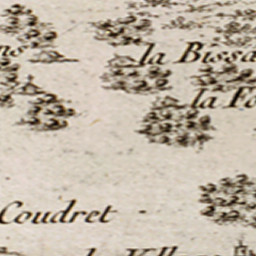 ns
la Bissa
la Fo
Coudret